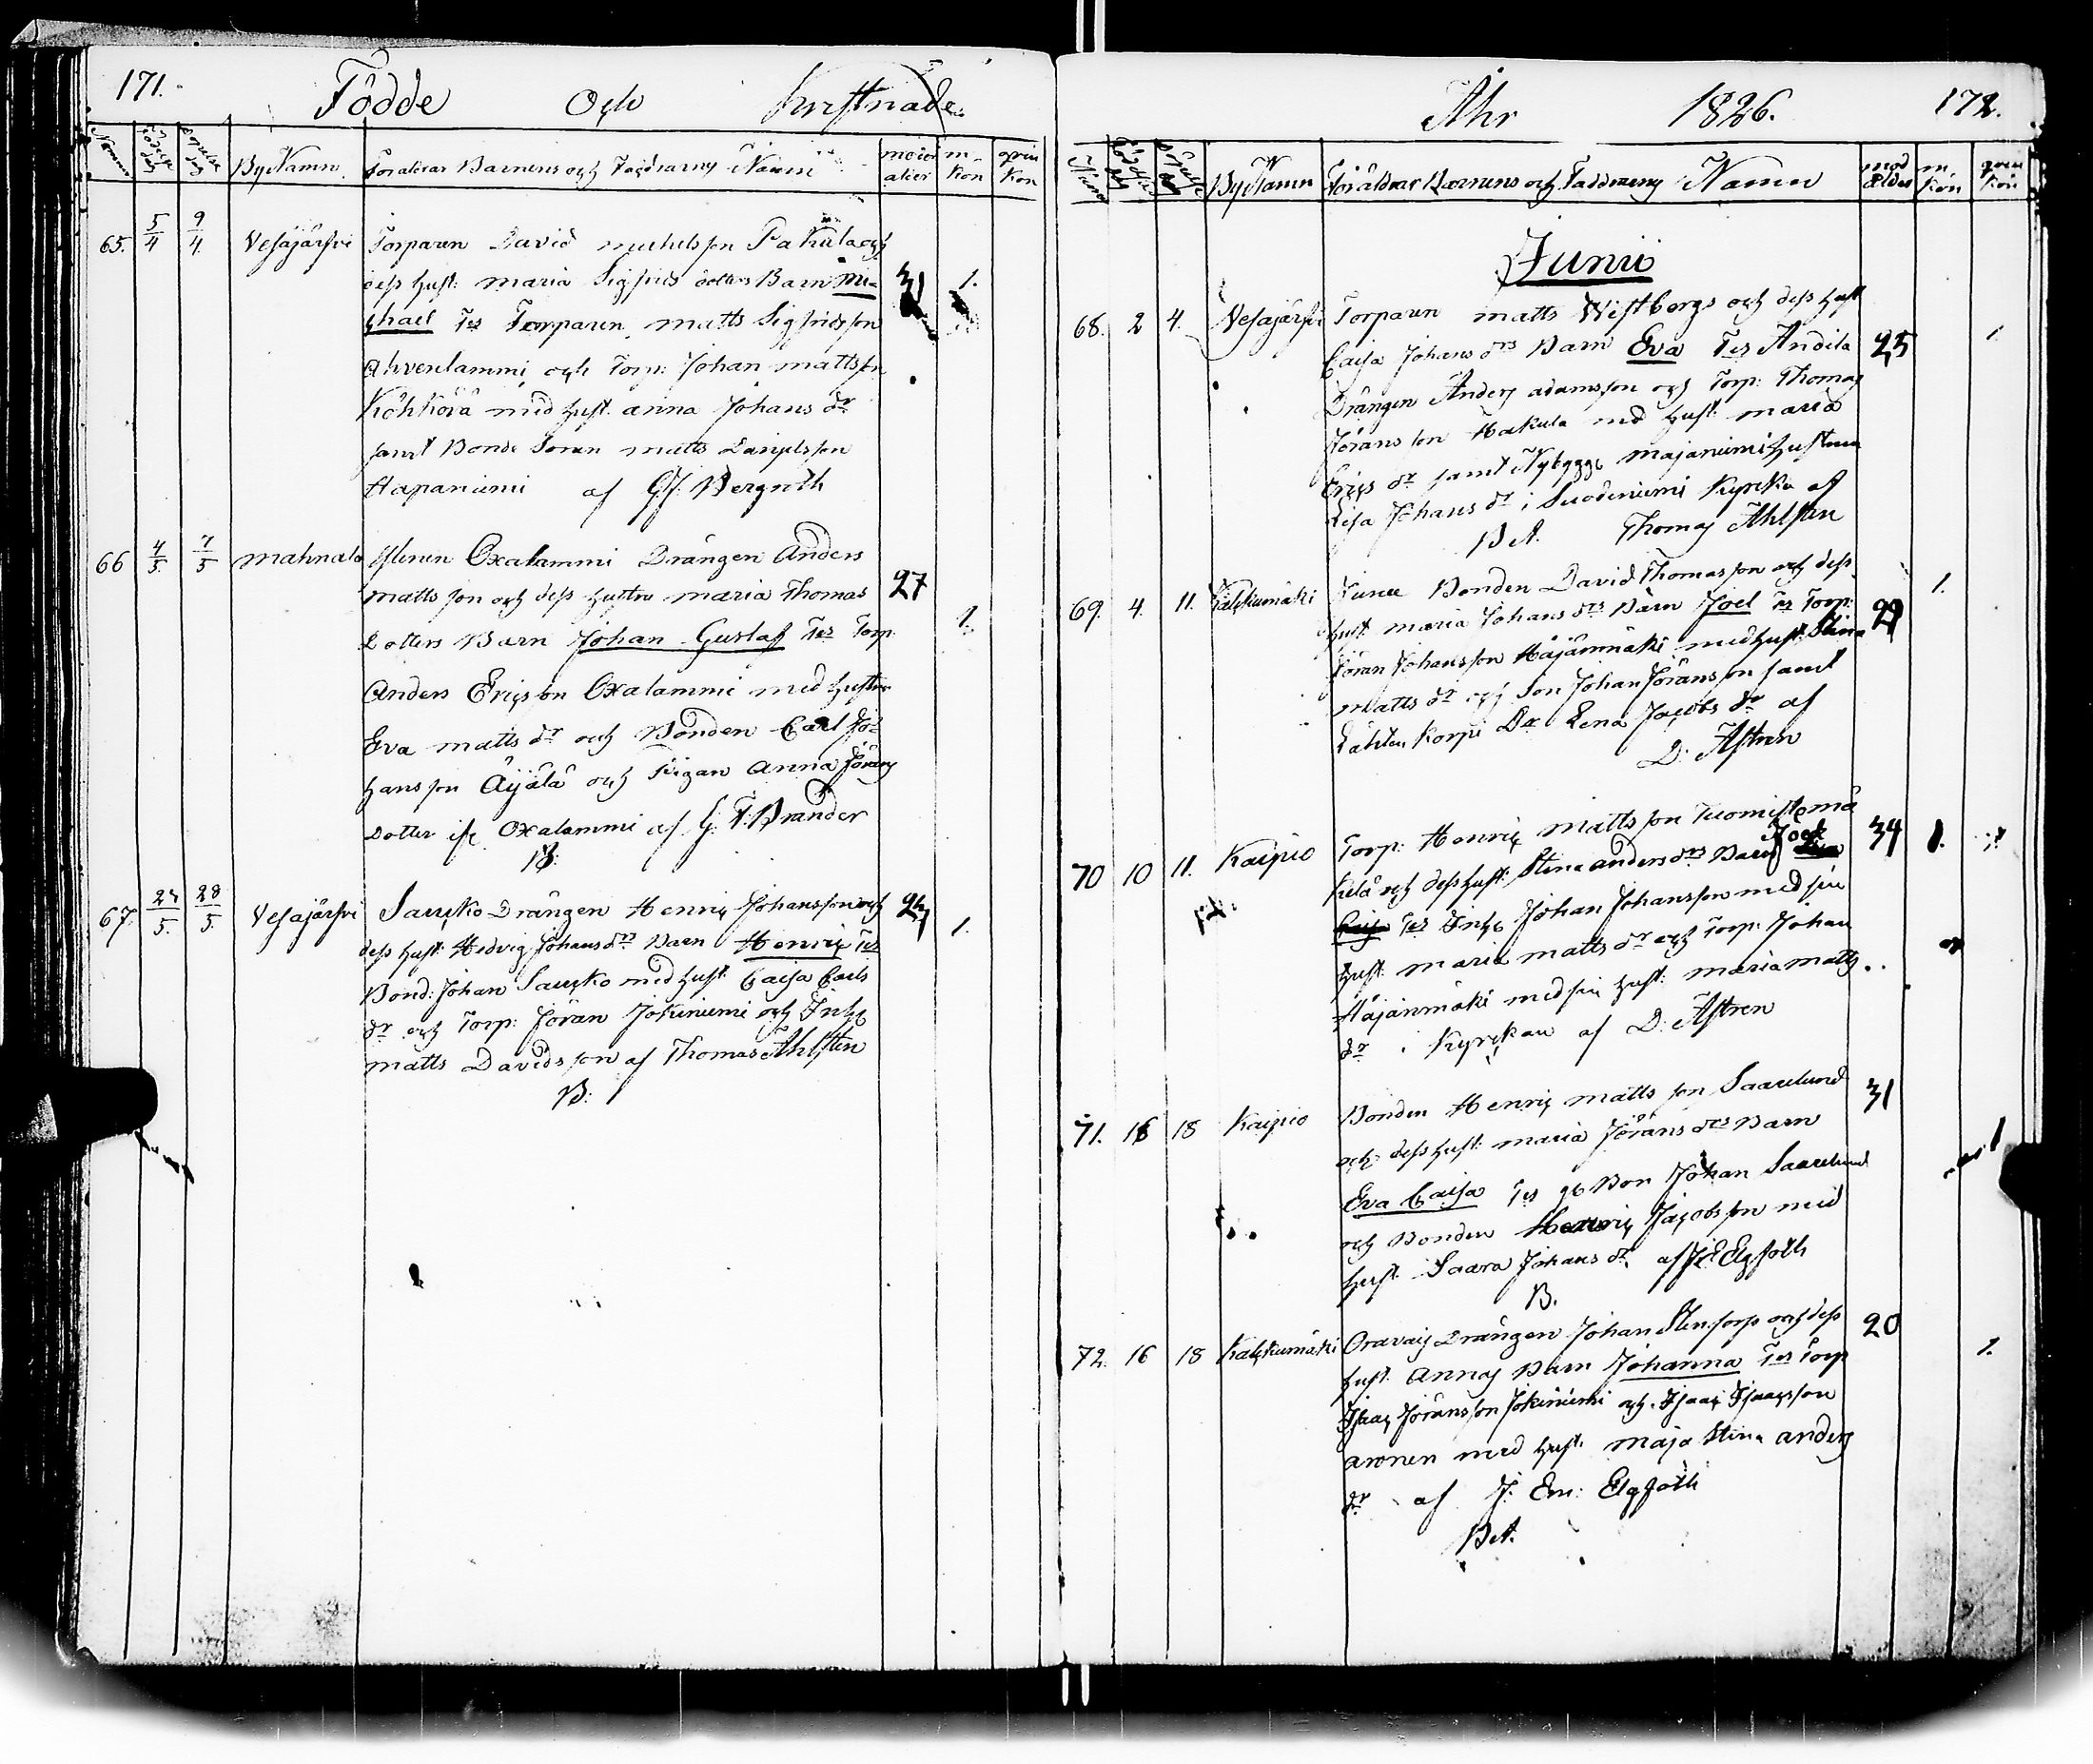 171. Födde Och Kristnade
ByNamn Föräldrar Barnens och Faddrarnes Namn moder alder m- kön qvin kön
65. 5/4 9/4 Vesajärfvi Torparen David michelsson Pakula och
dess hust: maria Sigfrids dotters Barn mi- 31 1.
chael Tes Torparen matts Sigfridsson
Ahvenlammi och Torp: Johan mattsson
Köhkörä med hust. anna Johans dr
samt Bonde Sonen matts Danielsson
Hapaniemi af GJ. Bergroth
66 4/5 7/5 mahnala Ylinen Oxalammi Drängen Anders
matts son och dess hustru maria Thomas 27
Dotters Barn Johan Gustaf Tes Torp. 1.
Anders Ericsson Oxalammi med hustru
Eva matts dr och Bonden Carl Jo-
hans son Äijälä och Pigan Anna Jörans
Dotter ifr Oxalammi af G. F. Brander
B:
67. 24/5. 28/5. Vesajärfvi Saucko Drängen Henric Johansson och 24
dess hust: Hedvig Johans drs Barn Henric Tes 1.
Bond: Johan Saucko med hust Caisa Carls
dr och Torp: Jöran Jokiniemi och Inhs
matts Davids son af Thomas Ahlsten
B:
Åhr 1826. 172.
ByNamn Föräldrar Barnens och Faddrarnes Namn mod ålder m kön qvin kön
Junii
68. 2 4. Vesajärfvi Torparen matts Wistbergs och dess hust
Caisa Johans drs Barn Eva Tes Andila 25 1.
Drängen Anders adamsson och Torp: Thomas
Jörans son Hakula med hust. maria
Erics dr samt Nybygg: majaniemi hustrun
Lisa Johans dr i Suodeniemi Kyrka af
Bet. Thomas Ahlsten
69. 4. 11. Kalckumäki Bonden David Thomasson och dess 1.
hust. maria Johans drs Barn Joel Tes Torp:
Jöran Johansson Häjänmäki med hust: Stina
matts dr och Son Johan Jöransson samt
korpi Dr Lena Jacobs dr af
D: Astren
70 10 11. Kaipio Torp: Henric matts son Tuomistomä 34 1.
kilä och dess hust: Stina anders drs Barn Joel
Tes Inhs Johan Johansson med sin
hust. maria matts dr och Torp: Johan
Häjänmäki med sin hust: maria matts
dr i Kyrckan af D: Astren
71. 16 18 Kaipio Bonden Henric matts son Saarelund 31
och dess hust. maria Jörans drs Barn 1
Eva Caisa Tes gb Bon Johan Saarelund
och Bonden Henric Jacobs son med
hust. Saara Johans dr. af J E Elgfoth
B.
72. 16 18 Kalckumäki Oravais Drängen Johan Stenforp och dess 20
hust. Annas Barn Johanna Tes Torp 1.
Isaac Jöransson Jokiniemi och Isaac Isaacsson
aronen med hust. maja Stina anders
dr af J. Em: Elgfoth
Bet.